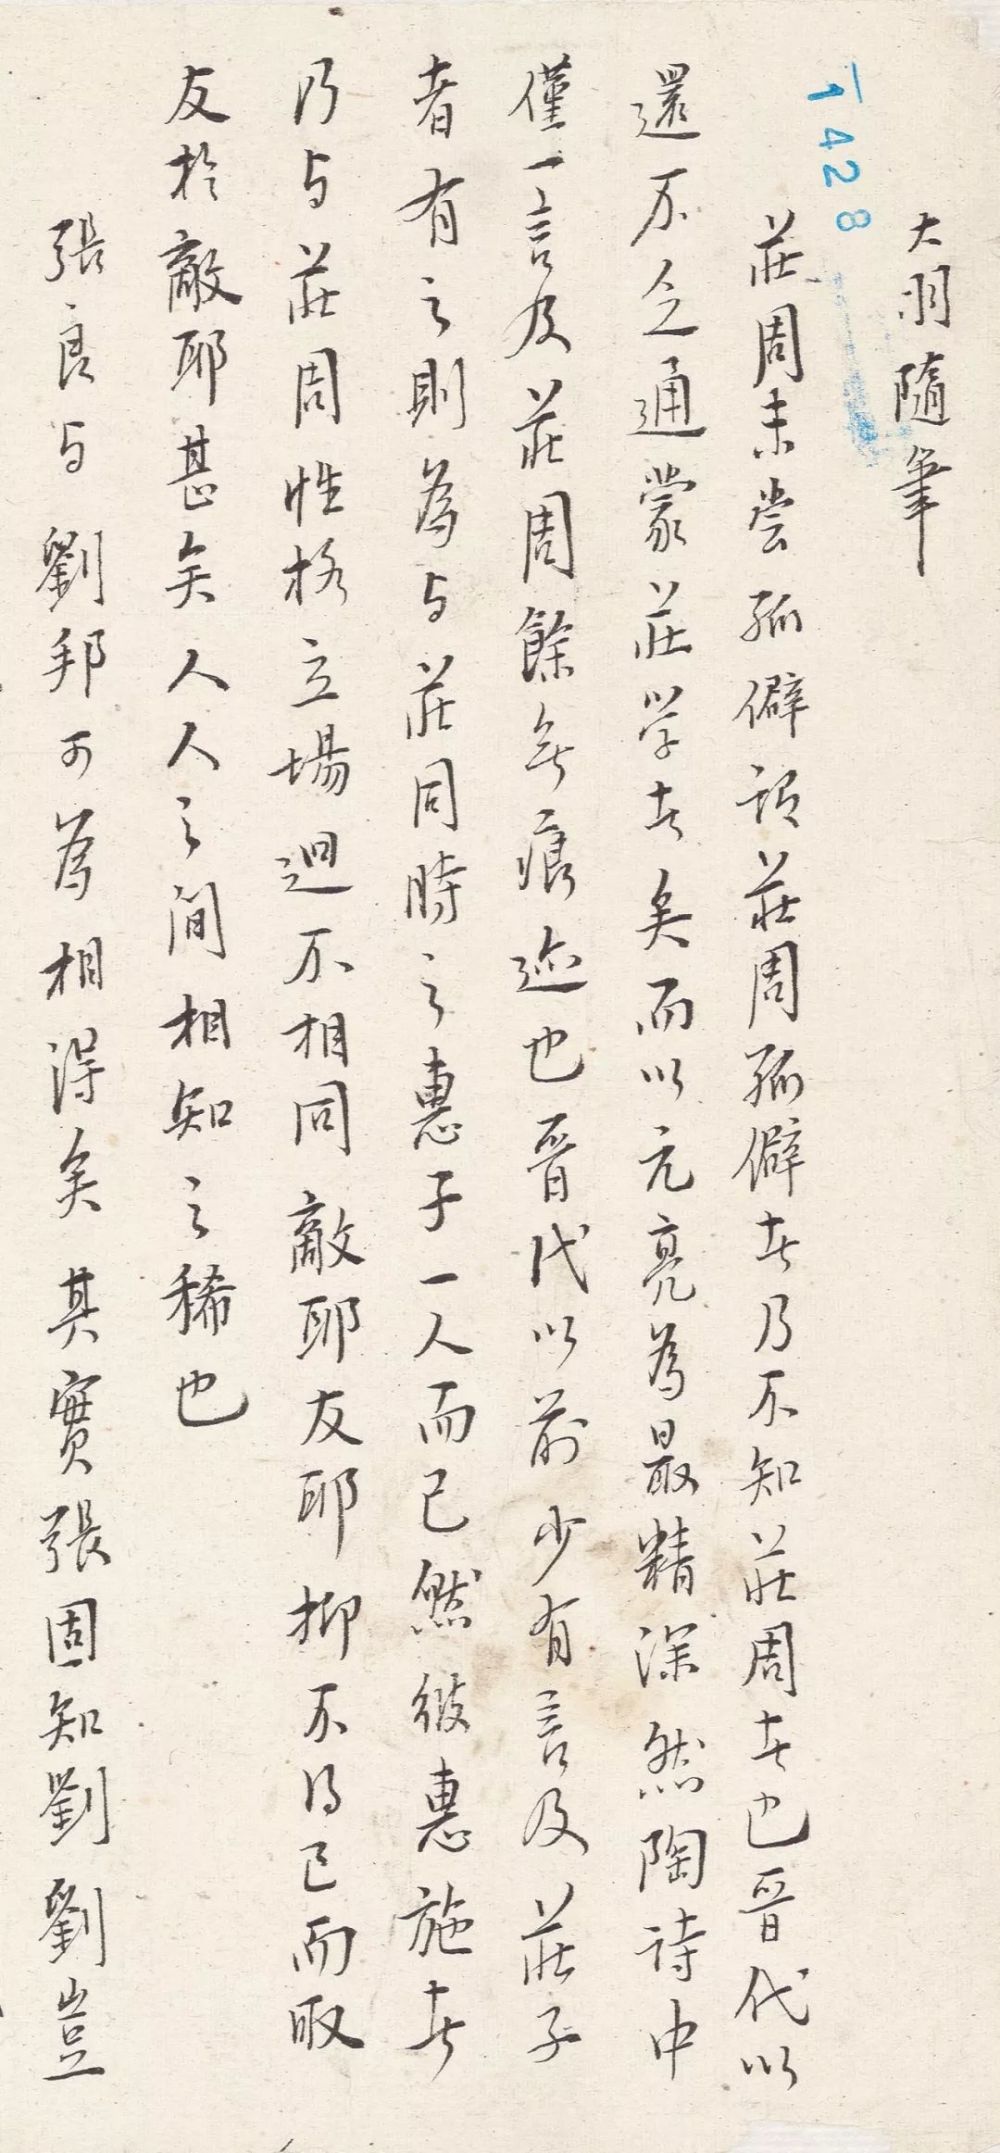 大羽隨筆
1428
莊周未嘗孤僻謂莊周孤僻者乃不知莊周者也晋代以
還不乏通蒙莊学者矣而以元亮為最精深然陶詩中
僅一言及莊周餘無痕迹也晋代以前少有言及莊子
者有之則為与莊同時之惠子一人而已然彼惠施者
乃与莊周性格立場迥不相同敵耶友耶抑不得已而取
友於敵耶甚矣人人之间相知之稀也
張良与劉邦可為相得矣其實張固知劉劉豈